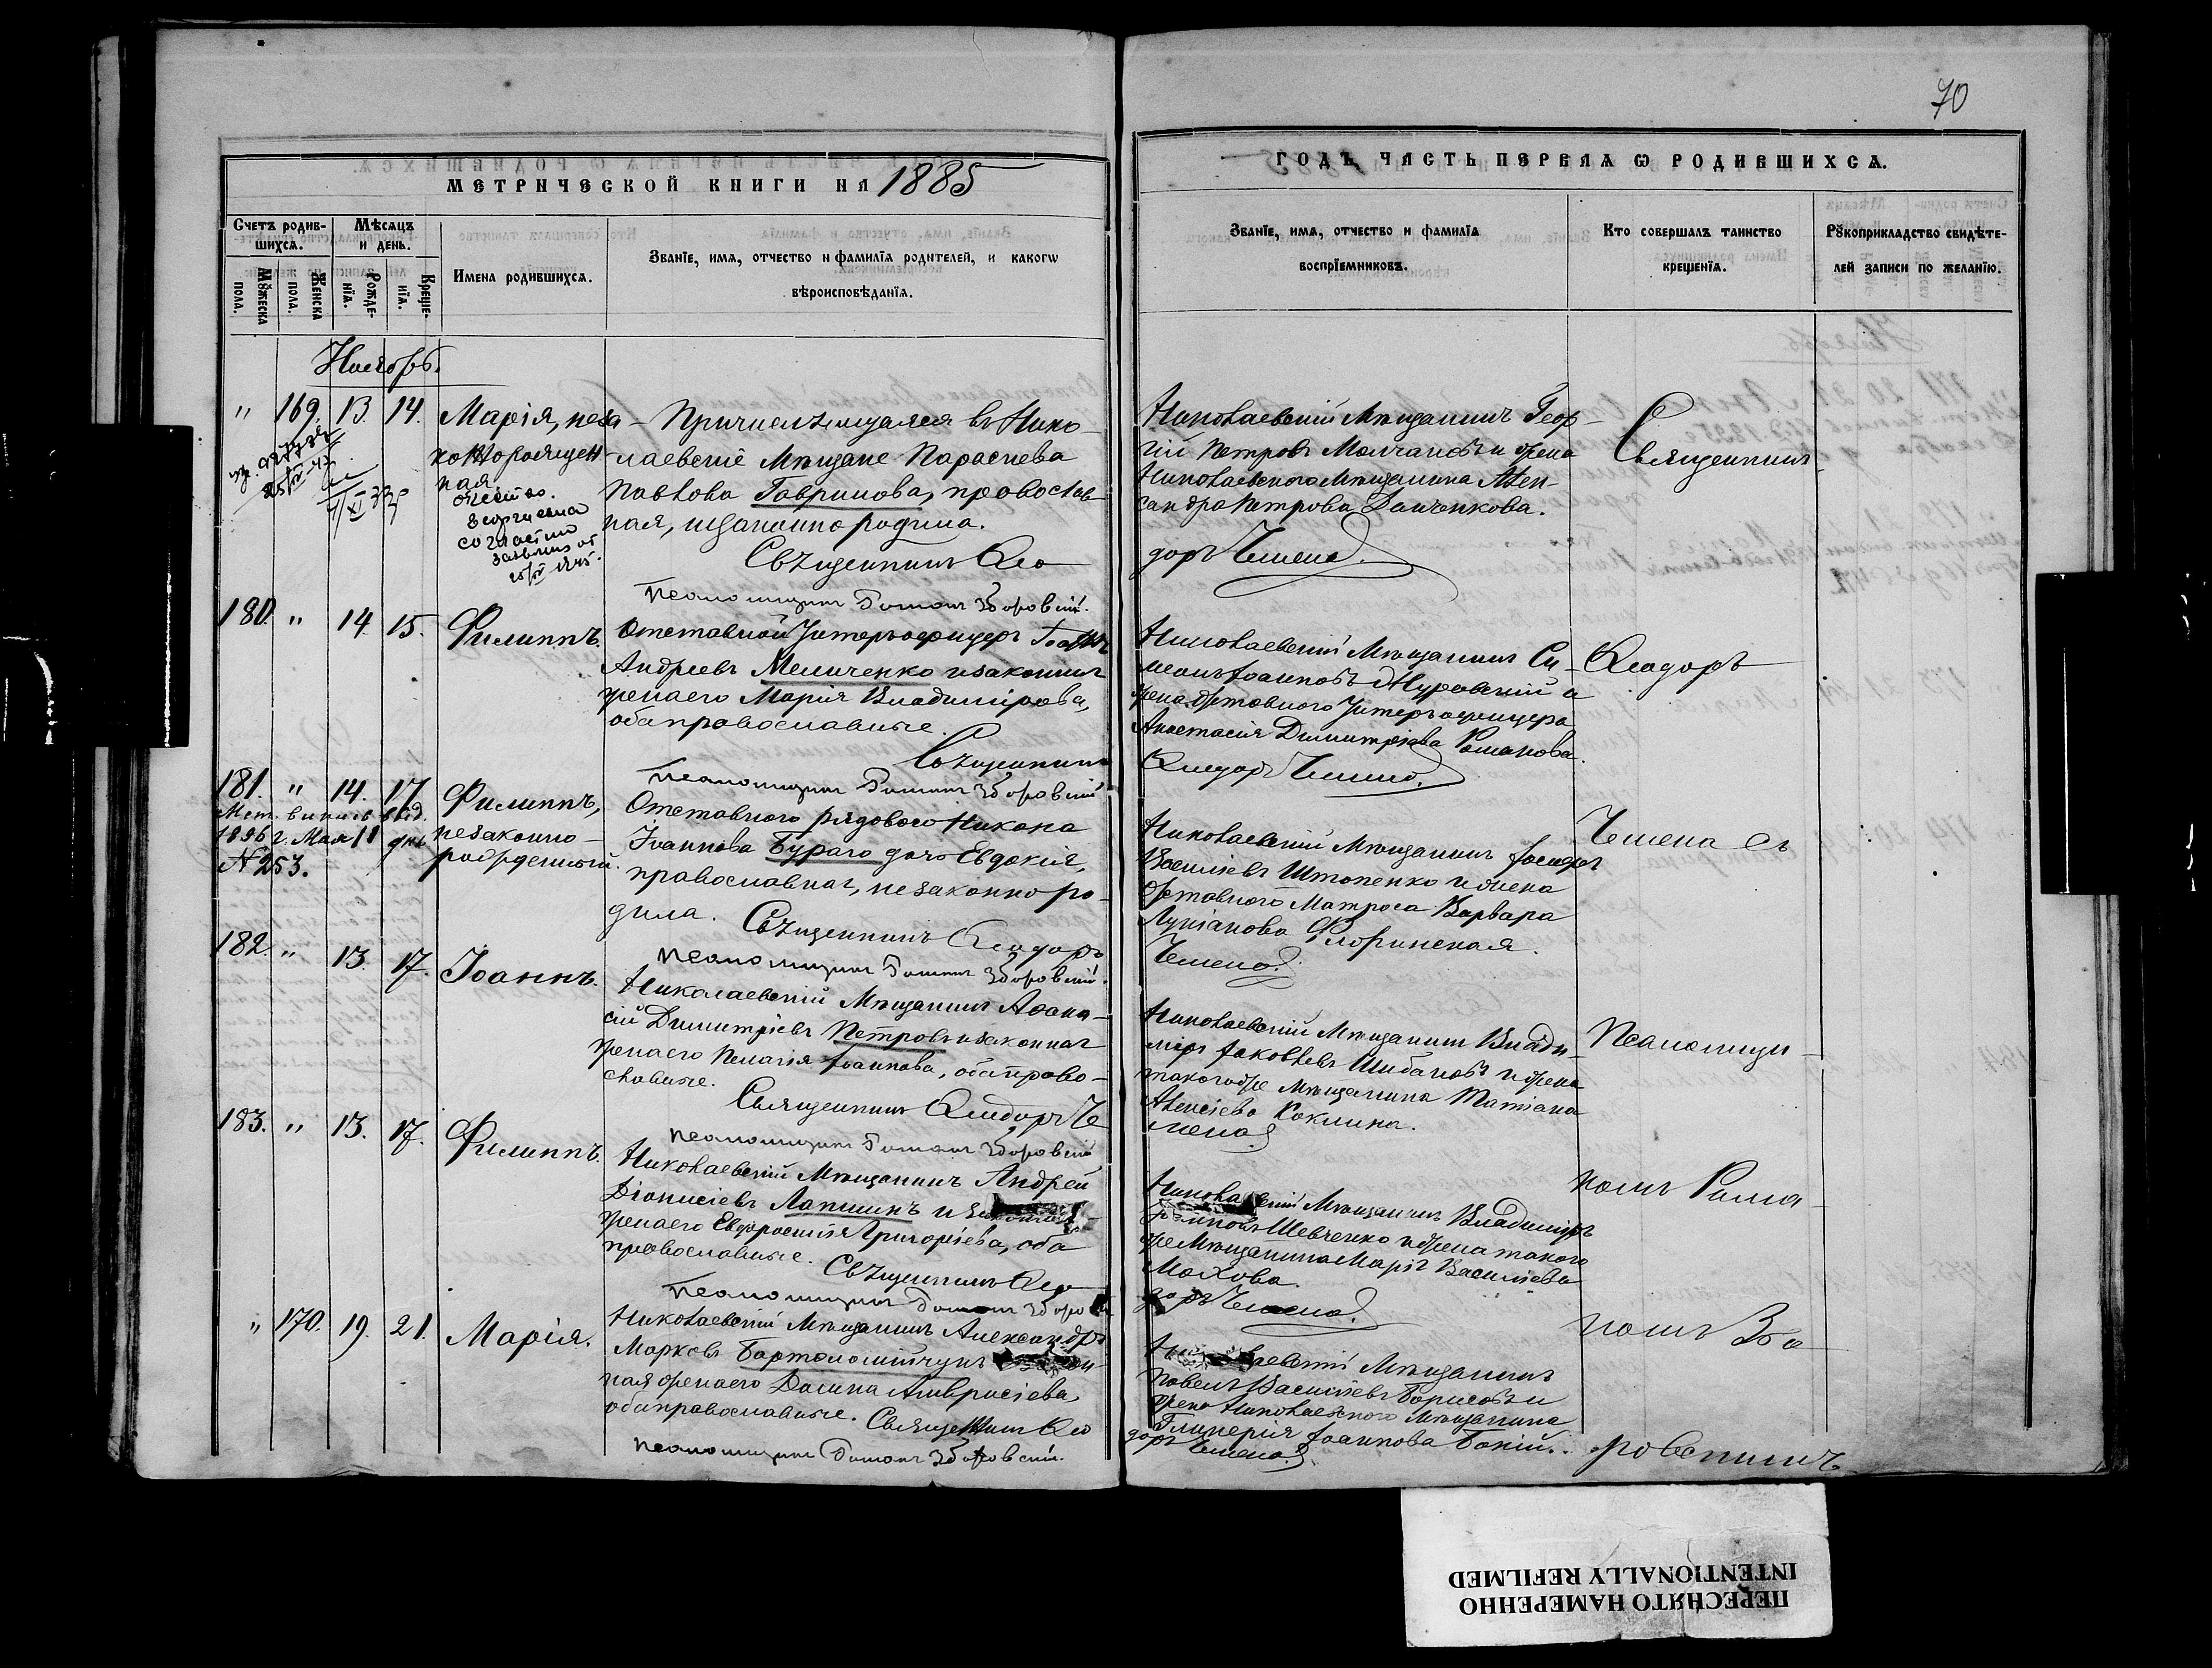 70
МЕТРИЧЕСКОЙ КНИГИ НА 1885
ГОДЪ, ЧАСТЬ ПЕРВАЯ Ѡ РОДИВШИХСЯ.
Счетъ родив-
шихся.
Мѣсяцъ
и день.
Мꙋжеска
пола.
Женска
пола.
Рожде-
нїя.
Креще-
нїя.
Имена родившихся.
Званїе, имя, отчество и фамилїя родителей, и какогѡ
вѣроисповѣданїя.
Званїе, имя, отчество и фамилїя
воспрїемниковъ.
Кто совершалъ таинство
крещенїя.
Рꙋкоприкладство свидѣте-
лей записи по желанїю.
Ноябрь.
" 169. 13. 14. Марія, неза-
конорожден-
ная
отчество
Георгиевна
согласно
Причисляющаяся въ Нико-
лаевскіе Мѣщане Параскева
Павлова Гаврилова, православ-
ная, незаконно родила.
Священникъ Ѳео
Николаевскій Мѣщанинъ Геор-
гій Петровъ Молчановъ и жена
Николаевскаго Мѣщанина Алек-
сандра Петрова Данченкова.
доръ Чемена.
Священникъ
Псаломщикъ Романъ Зборовскій.
180. " 14. 15. Филиппъ.
Отставной Унтеръ офицеръ
Андреевъ Мельниченко и законная
жена его Марія Владимірова,
оба православные.
Священникъ
Николаевскій Мѣщанинъ Си-
меонъ Іоанновъ Журавскій и
жена Отставного Унтеръ офицера
Анастасія Димитріева Романова.
Ѳеодоръ Чемена.
Ѳеодоръ
Псаломщикъ Романъ Зборовскій
181. " 14. 17. Филиппъ,
незаконно-
рожденный.
Мет. выпись выд.
1896 г. Мая 11 дня
№ 253.
Отставного рядового Никона
Іоаннова Бураго дочь Евдокія,
православная, незаконно ро-
дила. Священникъ Ѳеодоръ
Николаевскій Мѣщанинъ Іосифъ
Василіевъ Штопенко и жена
Отставного Матроса Варвара
Лукіанова Флоринская.
Чемена.
Чемена съ
Псаломщикъ Романъ Зборовскій.
182. " 13. 17. Іоаннъ.
Николаевскій Мѣщанинъ Аѳана-
сій Димитріевъ Петровъ и законная
жена его Пелагія Іоаннова, оба право-
славные.
Священникъ Ѳеодоръ Че
Николаевскій Мѣщанинъ Влади-
міръ Іаковлевъ Шибановъ и жена
такогоже Мѣщанина Татіана
Алексіева Коклина.
мена.
Псаломщи-
Псаломщикъ Романъ Зборовскій
183. " 13. 17. Филиппъ.
Николаевскій Мѣщанинъ Андрей
Діонисіевъ Лапшинъ и законная
жена его Евфросинія Григоріева, оба
православные.
Священникъ Ѳео
Николаевскій Мѣщанинъ Владиміръ
Іоанновъ Шевченко и жена такого
же Мѣщанина Марія Василіева
Махова.
доръ Чемена.
комъ Рома-
Псаломщикъ Романъ Зборов
" 170. 19. 21. Марія.
Николаевскій Мѣщанинъ Александръ
Марковъ Бартоломійчукъ и закон-
ная жена его Домна Амвросіева,
оба православные. Священникъ Ѳео
Николаевскій Мѣщанинъ
Павелъ Василіевъ Борисовъ и
жена Николаевского Мѣщанина
Гликерія Іоаннова Бокій.
доръ Чемена.
номъ Збо-
ровскимъ
Псаломщикъ Романъ Зборовскій.
ПЕРЕСНЯТО НАМЕРЕННО
INTENTIONALLY REFILMED